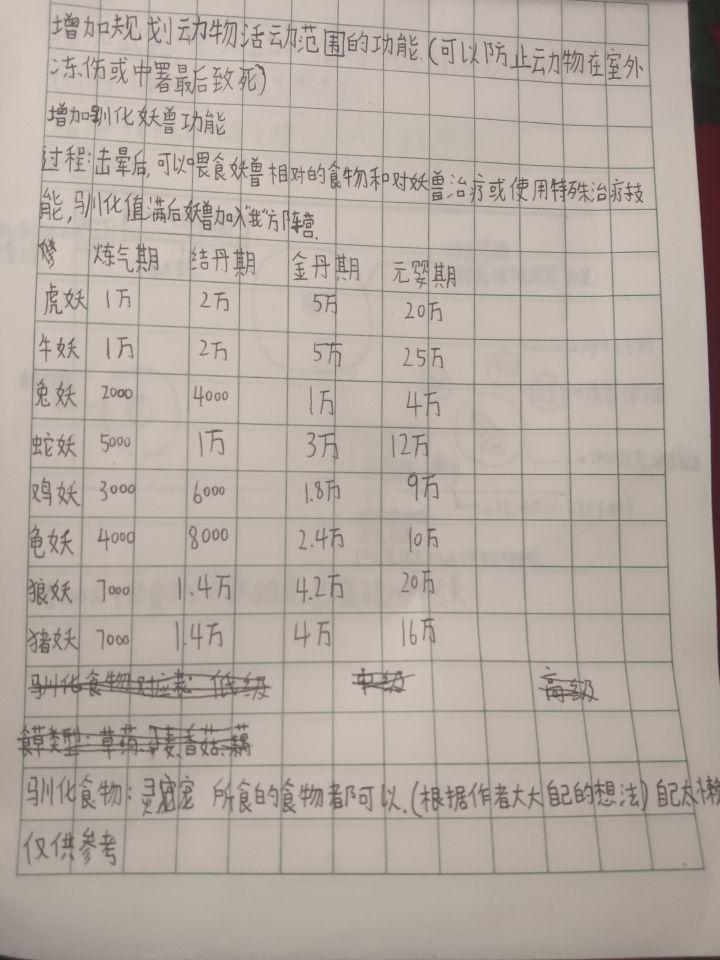 增加规划动物活动范围的功能.(可以防止动物在室外
冻伤或中署最后致死)
增加驯化妖兽功能
过程:击晕后,可以喂食妖兽相对的食物和对妖兽治疗或使用特殊治疗技
能,驯化值满后妖兽加入"我"方阵营.
修 炼气期 结丹期 金丹期 元婴期
虎妖 1万 2万 5万 20万
牛妖 1万 2万 5万 25万
兔妖 2000 4000 1万 4万
蛇妖 5000 1万 3万 12万
鸡妖 3000 6000 1.8万 9万
龟妖 4000 8000 2.4万 10万
狼妖 7000 1.4万 4.2万 20万
猪妖 7000 1.4万 4万 16万
驯化食物对应表: 低级 中级 高级
食草类型:草药、麦、香菇、藕
驯化食物:灵宠 所食的食物都可以.(根据作者大大自己的想法)自己太懒
仅供参考